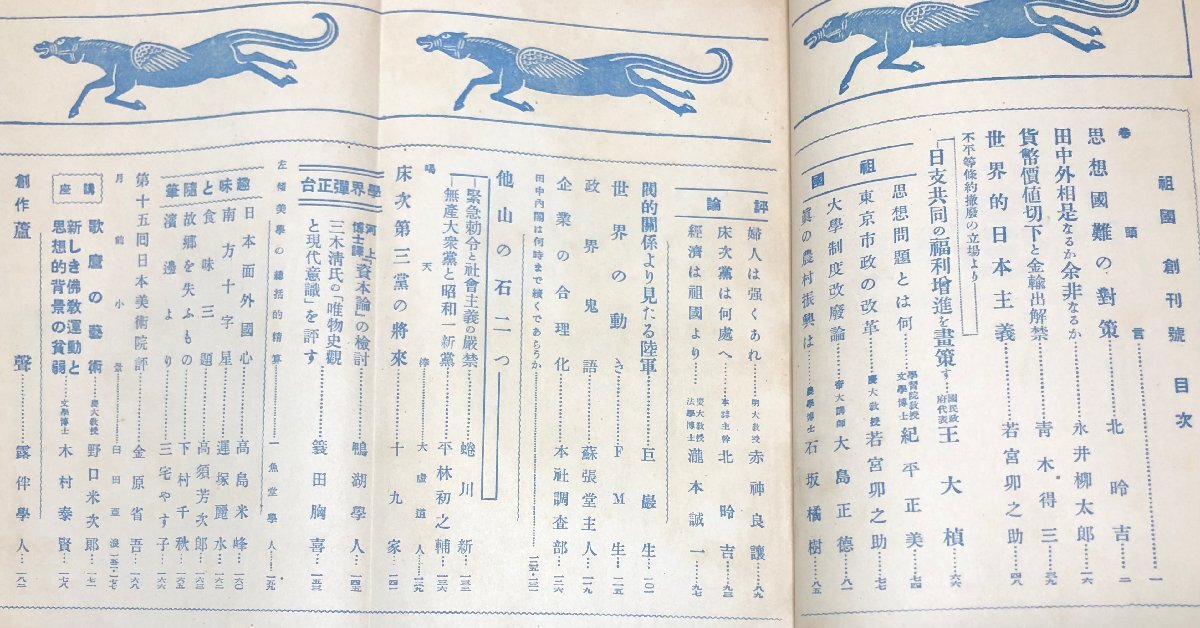 祖國創刊號 目次
卷頭言…一
思想國難の對策…北昤吉…二
田中外相是なるか余非なるか…永井柳太郎…一六
貨幣價値切下と金輸出解禁…青木得三…三九
世界的日本主義…若宮卯之助…四八
不平等條約撤廢の立場より
日支共同の福利增進を畫策す…國民政府代表 王大楨…六六
祖國
思想問題とは何…學習院教授 文學博士 紀平正美…七四
東京市政の改革…慶大教授 若宮卯之助…七七
大學制度改廢論…大島正德…八一
眞の農村振興は…農學博士 石坂橘樹…八五
評論
婦人は强くあれ…明大教授 赤神良讓…八九
床次黨は何處へ…本誌主幹 北昤吉…九三
經濟は祖國より…慶大教授 法學博士 瀧本誠一…九七
閥的關係より見たる陸軍…巨巖生…一〇二
世界の動き…FM生…一一五
政界鬼語…蘇張堂主人…一一九
企業の合理化…本社調査部…一二六
田中內閣は何時まで續くであらうか
他山の石二つ
緊急勅令と社會主義の嚴禁…蜷川新…一三三
無產大衆黨と昭和一新黨…平林初之輔…一三六
喝天棒…大虛道人…一三九
床次第三黨の將來…十九家…一四一
學界彈正台
河上博士譯「資本論」の檢討…鴨湖學人…一四五
三木淸氏の「唯物史觀と現代意識」を評す…簑田胸喜…一五三
左傾美學の總括的精算…一魚堂學人…一五九
趣味と隨筆
日本面外國心…高島米峰…一六〇
南方十字星…運塚麗水…一六二
食味三題…高須芳次郎…一六三
故鄕を失ふもの…下村千秋…一六五
濱邊より…三宅やす子…一六六
第十五回日本美術院評…金原省吾…一六八
月前小景…臼田亞浪
講座
歌麿の藝術…慶大教授 野口米次郎…一七一
新しき佛敎運動と思想的背景の貧弱…文學博士 木村泰賢…一七八
創作 蘆聲…露伴學人…一八二